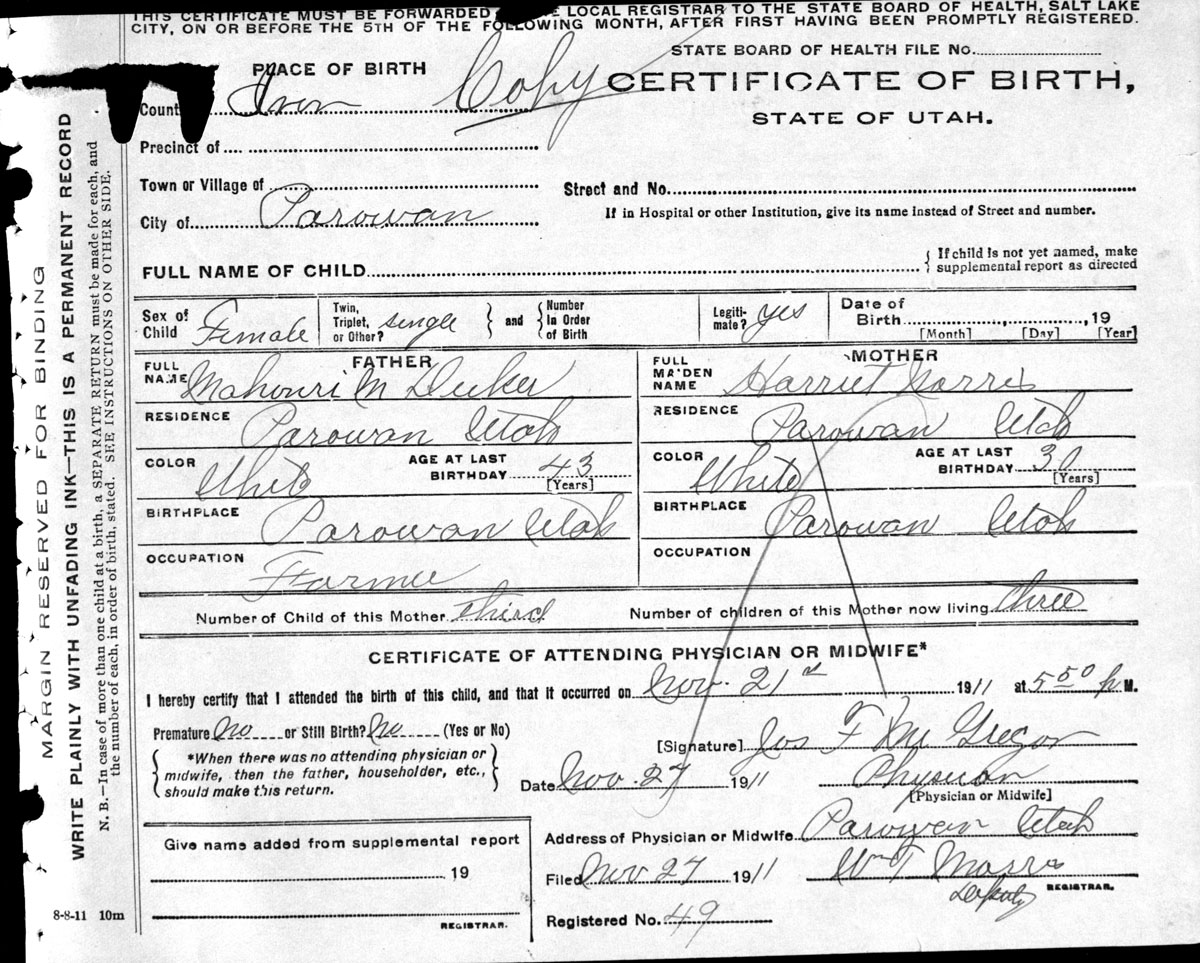 THIS CERTIFICATE MUST BE FORWARDED LOCAL REGISTRAR TO THE STATE BOARD OF HEALTH, SALT LAKE
CITY, ON OR BEFORE THE 5TH OF THE FOLLOWING MONTH, AFTER FIRST HAVING BEEN PROMPTLY REGISTERED.
STATE BOARD OF HEALTH FILE No.
PLACE OF BIRTH
Copy
CERTIFICATE OF BIRTH,
STATE OF UTAH.
Count Iron
Precinct of
Town or Village of
Street and No.
City of Parowan
If in Hospital or other Institution, give its name instead of Street and number.
FULL NAME OF CHILD
{ If child is not yet named, make
supplemental report as directed
Sex of Child Female
Twin, Triplet, or Other? single } and { Number In Order of Birth
Legiti-mate? yes
Date of Birth , , 19
[Month] [Day] [Year]
FATHER
FULL NAME Mahonri M Decker
RESIDENCE
Parowan Utah
COLOR White
AGE AT LAST BIRTHDAY 43
[Years]
BIRTHPLACE
Parowan Utah
OCCUPATION
Farmer
MOTHER
FULL MAIDEN NAME Harriet
RESIDENCE
Parowan Utah
COLOR White
AGE AT LAST BIRTHDAY 30
[Years]
BIRTHPLACE
Parowan Utah
OCCUPATION
Number of Child of this Mother third
Number of children of this Mother now living three
CERTIFICATE OF ATTENDING PHYSICIAN OR MIDWIFE*
I hereby certify that I attended the birth of this child, and that it occurred on Nov. 21st 1911 at 5 50 p M.
Premature No or Still Birth? No (Yes or No)
{ *When there was no attending physician or
midwife, then the father, householder, etc.,
should make this return. }
[Signature] Jos F McGregor
Date Nov. 27 1911 Physician
[Physician or Midwife]
Address of Physician or Midwife Parowan Utah
Filed Nov 27 1911 Wm T Morris
Deputy REGISTRAR.
Registered No. 49
Give name added from supplemental report
19
REGISTRAR.
8-8-11 10m
MARGIN RESERVED FOR BINDING
WRITE PLAINLY WITH UNFADING INK—THIS IS A PERMANENT RECORD
N. B.—In case of more than one child at a birth, a SEPARATE RETURN must be made for each, and
the number of each, in order of birth, stated. SEE INSTRUCTIONS ON OTHER SIDE.